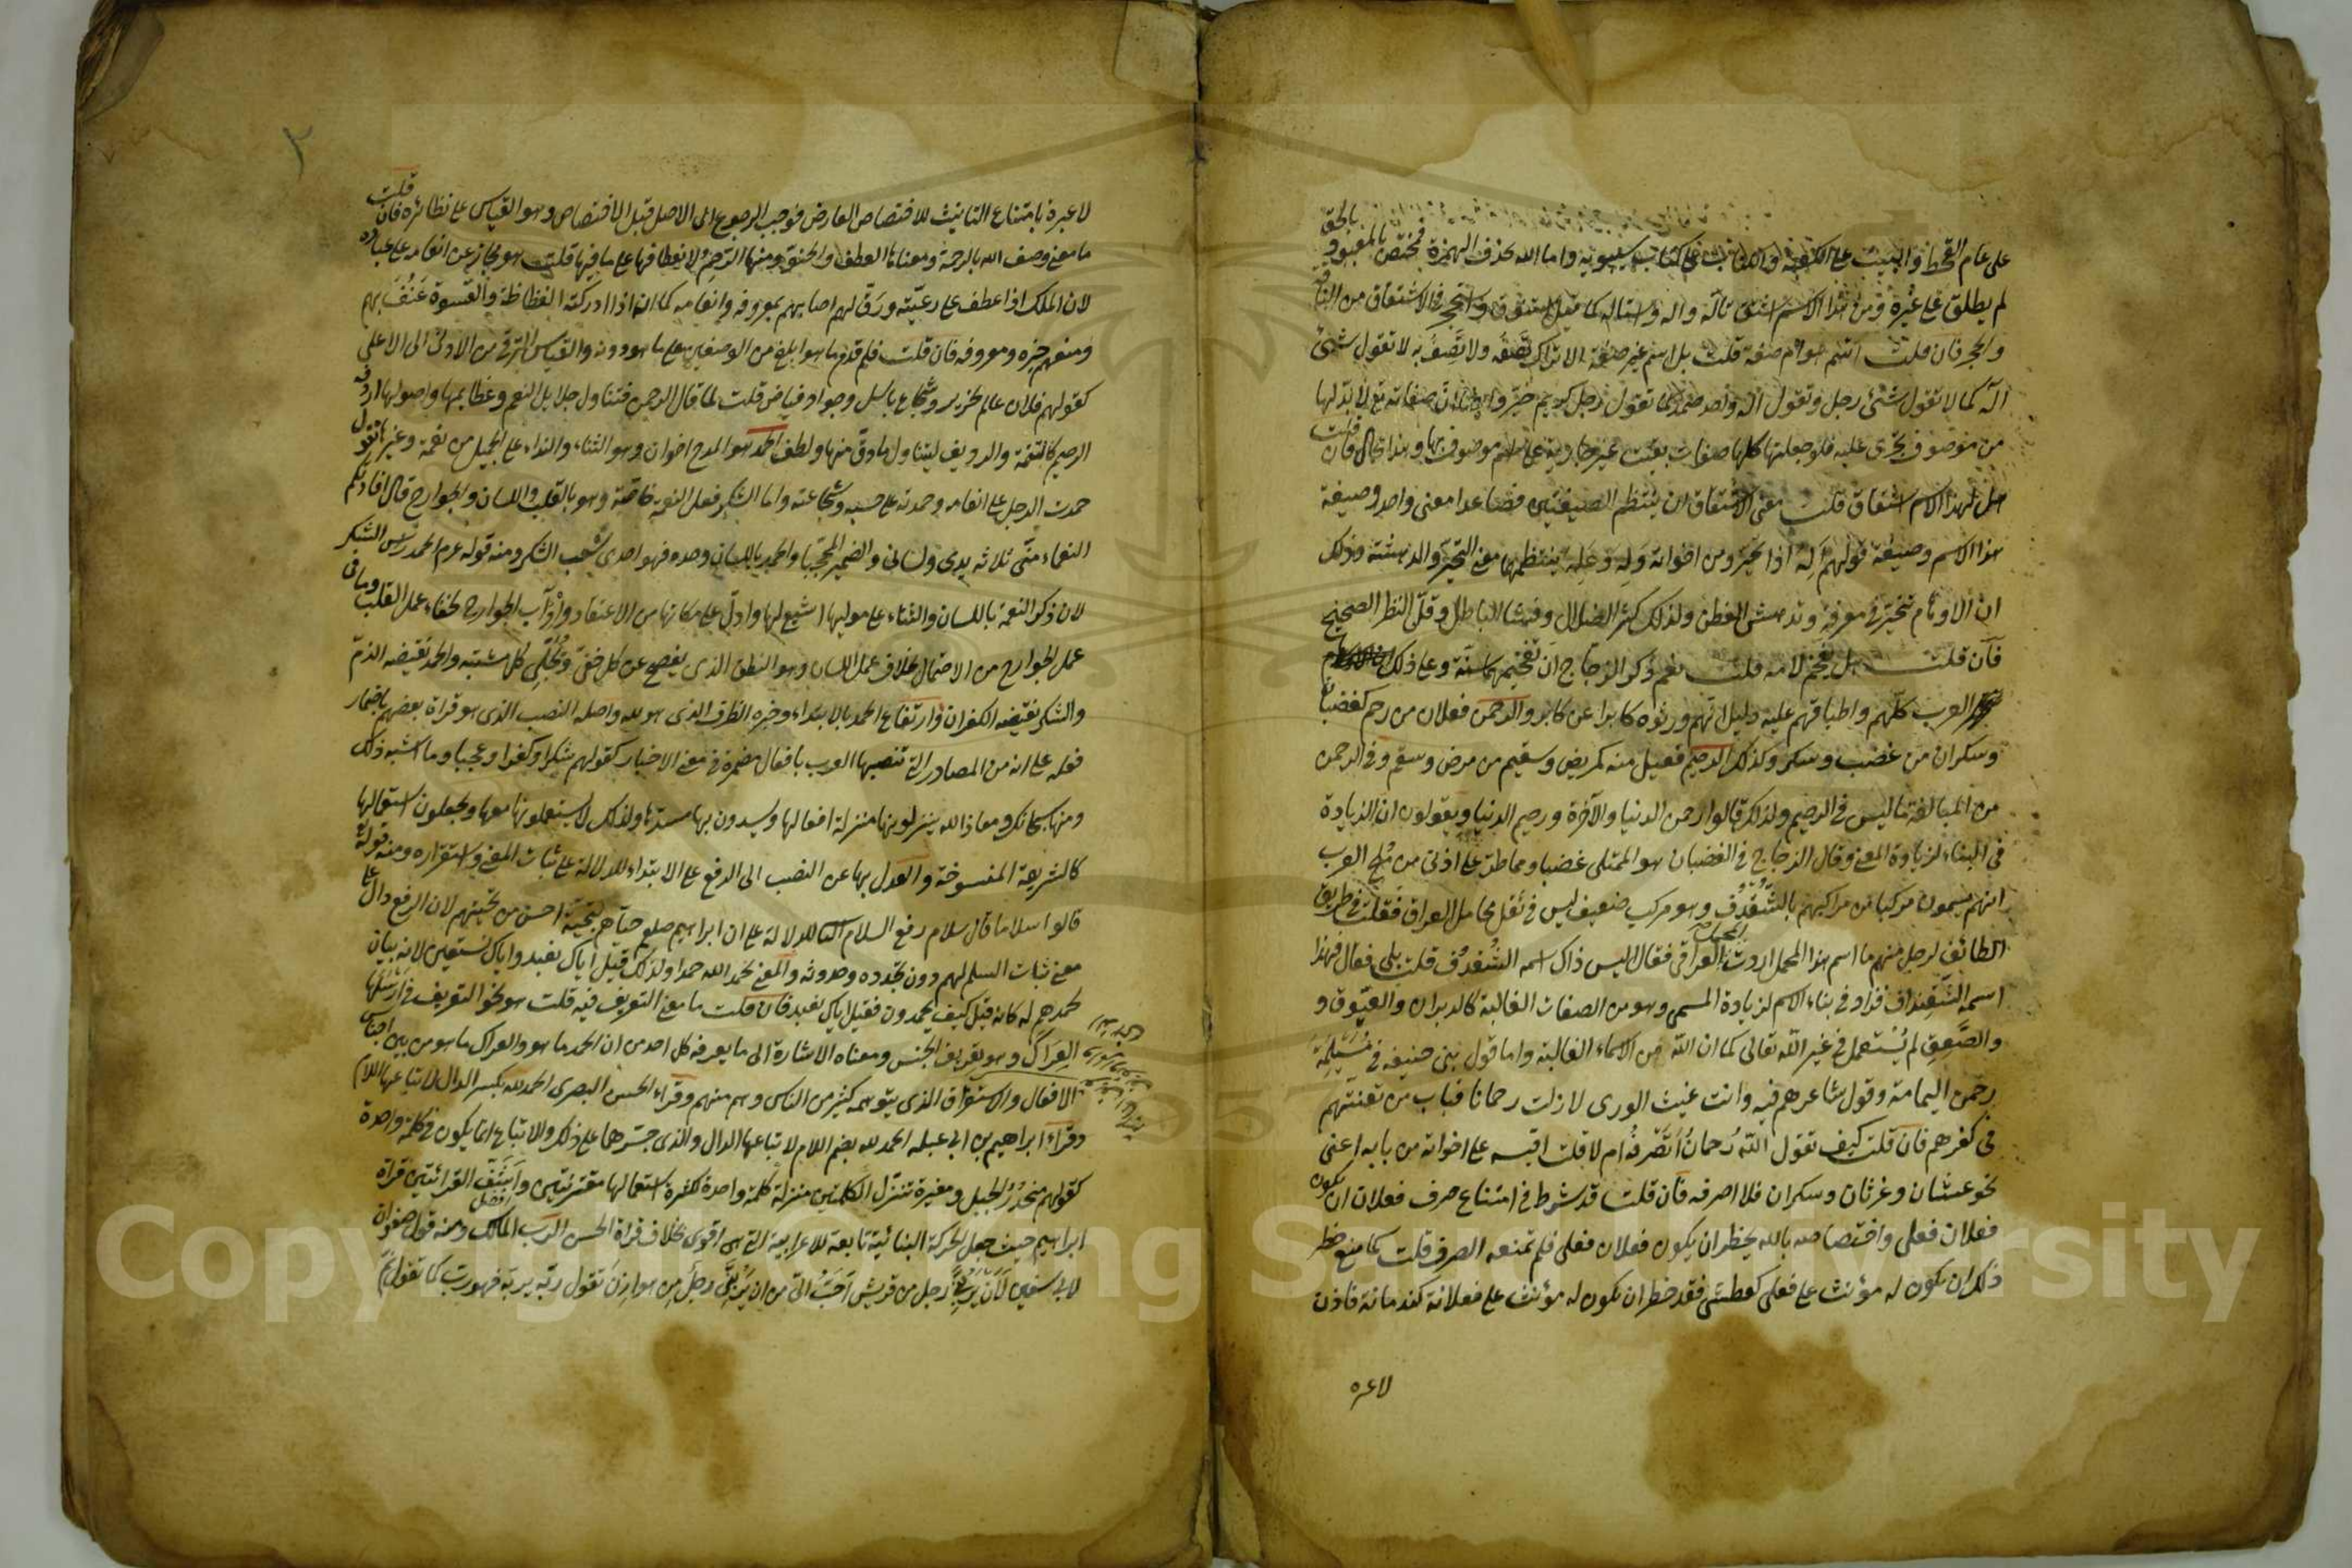 على عام القحط والبيت على الكعبة والكتاب على كتاب سيبويه واما الله بحذف الهمزة فمختص بالمعبود بالحق
لم يطلق على غيره ومن هذا الاسم اشتق تألّه واله واستاله كما قيل استنوق واستحجر في الاشتقاق من الناقة
والحجر فان قلت اسم هو ام صفة قلت بل اسم غير صفة الا تراك تصفه ولا تصف به لا تقول شئ
اله كما لا تقول شئ رجل وتقول اله واحد صمد كما تقول رجل كريم خير وايضا فان صفاته تع لا بد لها
من موصوف تجرى عليه فلو جعلتها كلها صفات بقيت غير جارية على اسم موصوف بها وهذا محال فان قلت
هل لهذا الاسم اشتقاق قلت معنى الاشتقاق ان ينتظم الصيغتين فصاعدا معنى واحد وصيغة
هذا الاسم وصيغة قولهم اَلِه اذا تحيّر ومن اخواته وَلِه وعَلِه ينتظمهما معنى التحيّر والدهشة وذلك
ان الاوهام تتحيّر في معرفة وتدهش الفطن ولذلك كثر الضلال وفشا الباطل وقلّ النظر الصحيح
فان قلت هل تفخم لامه قلت نعم ذكر الزجاج ان تفخيمها سنّة وعلى ذلك
العرب كلّهم واطباقهم عليه دليل انهم ورثوه كابرا عن كابر والرحمن فعلان من رحم كغضبان
وسكران من غضب وسكر وكذلك الرحيم فعيل منه كمريض وسقيم من مرض وسقم وفي الرحمن
من المبالغة ما ليس في الرحيم ولذلك قالوا رحمن الدنيا والآخرة ورحيم الدنيا ويقولون ان الزيادة
في البناء لزيادة المعنى وقال الزجاج في الغضبان هو الممتلى غضبا ومما طنّ على اذنى من مُلَح العرب
انهم يسمون مركبا من مراكبهم بالشُّقْدُف وهو مركب خفيف ليس في ثقل محامل العراق فقلت في طريق
الطائف لرجل منهم ما اسم هذا المحمل اردت المحمل العراقى فقال اليس ذاك اسمه الشُّقدُف قلت بلى فقال فهذا
اسمه الشقنداف فزاد في بناء الاسم لزيادة المسمى وهو من الصفات الغالبة كالدبران والعيّوق و
والصَّعِق لم يُستعمل في غير الله تعالى كما ان الله من الاسماء الغالبة واما قول بنى حنيفة في مُسَيْلِمَة
رحمن اليمامة وقول شاعرهم فيه وانت غيث الورى لا زلت رحمانا فباب من تعنّتهم
في كفرهم فان قلت كيف تقول الله رحمانٌ اَتَصْرفُه ام لا قلت اقيسه على اخواته من بابه اعنى
نحو عطشان وغرثان وسكران فلا اصرفه فان قلت قد شرط في امتناع صرف فعلان ان يكون
فعلان فعلى واختصاصه بالله يحظر ان يكون فعلان فعلى فلم تمنعه الصرف قلت كما منع حظر
ذلك ان يكون له مؤنث على فعلى كعطشى فقد حظر ان يكون له مؤنث على فعلانة كندمانة فاذن
لا عبرة
لا عبرة بامتناع التانيث للاختصاص العارض فوجب الرجوع الى الاصل قبل الاختصاص وهو القياس على نظائره فان قلت
ما معنى وصف الله بالرحمة ومعناها العطف والحنو ومنها الرَّحِمُ لانعطافها على ما فيها قلت هو مجاز عن انعامه على عباده
لان الملك اذا عطف على رعيّته ورَقّ لهم اصابهم بمعروفه وانعامه كما انه اذا ادركته الفظاظة والقسوة عَنُفَ بهم
ومنعهم خيره ومعروفه فان قلت فلم قدّم ما هو ابلغ من الوصفين على ما هو دونه والقياس الترقى من الادنى الى الاعلى
كقولهم فلان عالم نحرير وشجاع باسل وجواد فياض قلت لما قال الرحمن فتناول جلايل النعم وعظايمها واصولها اردفه
الرحيم كالتتمة والرديف ليتناول ما دقّ منها ولطف الحمد هو المدح اخوان وهو الثناء والنداء على الجميل من نعمة وغيرها تقول
حمدت الرجل على انعامه وحمدته على حسبه وشجاعته واما الشكر فعلى النعمة خاصّة وهو بالقلب واللسان والجوارح قال افادتكم
النعماء منّى ثلاثة يدى ولسانى والضمير المحجّبا والحمد باللسان وحده فهو احدى شعب الشكر ومنه قوله عرم الحمد رئيس الشكر
لان ذكر النعمة باللسان والثناء على موليها اشيع لها وادلّ على مكانها من الاعتقاد وآداب الجوارح لخفاء عمل القلب وما في
عمل الجوارح من الاحتمال بخلاف عمل اللسان وهو النطق الذى يفصح عن كل خفىّ ويُجَلّى كل مشتبه والحمد نقيضه الذمّ
والشكر نقيضه الكفران وارتفاع الحمد بالابتداء وخبره الظرف الذى هو لله واصله النصب الذى هو قراة بعضهم باضمار
فعله على انه من المصادر التى تنصبها العرب بافعال مضمرة في معنى الاخبار كقولهم شكرا وكفرا وعجبا وما اشبه ذلك
ومنها سبحانك ومعاذ الله ينزلونها منزلة افعالها ويسدون بها مسدّها ولذلك لا يستعملونها معها ويجعلون استعمالها
كالشريعة المنسوخة والعدل بها عن النصب الى الرفع على الابتداء للدلالة على ثبات المعنى واستقراره ومنه قوله تع
قالوا سلاما قال سلام رفع السلام الثانى للدلالة على ان ابراهيم صلعم حيّاهم بتحيّة احسن من تحيّتهم لان الرفع دال على
معنى ثبات السلم لهم دون تجدّده وحدوثه والمعنى نحمد الله حمدا ولذلك قيل اياك نعبد واياك نستعين لانه بيان
لحمدهم له كانه قيل كيف تحمدون فقيل اياك نعبد فان قلت ما معنى التعريف فيه قلت هو نحو التعريف في اَرْسَلَها
العِرَاكَ وهو تعريف الجنس ومعناه الاشارة الى ما يعرفه كل احد من ان الحمد ما هو والعراك ما هو من بين اجناس
الافعال والاستغراق الذى يتوهمه كثير من الناس وهم منهم وقراءة الحسن البصرى الحمد لله بكسر الدال لاتباعها اللام
وقراءة ابراهيم بن ابى عبلة الحمد لله بضم اللام لاتباعها الدال والذى جسّرهما على ذلك والاتباع انما يكون في كلمة واحدة
كقولهم منحدُرُ الجبل ومغيرة تنزّل الكلمتين منزلة كلمة واحدة لكثرة استعمالها مقترنتين واَشَفّ القرائتين قراة
ابراهيم حيث جعل الحركة البنائية تابعة للاعرابية التى هى اقوى بخلاف قراة الحسن الرب المالك ومنه قول صفوان
لابى سفين لَأَنْ يَرُبَّنى رجل من قريش اَحَبُّ الىّ من ان يَرُبَّنى رجل من هوازن تقول ربّه يربّه فهو ربّ كما تقول نمّ